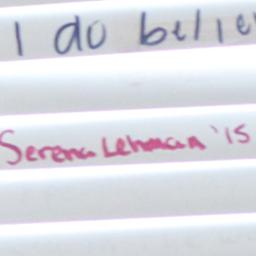 I do belie
Serena Lehman '15